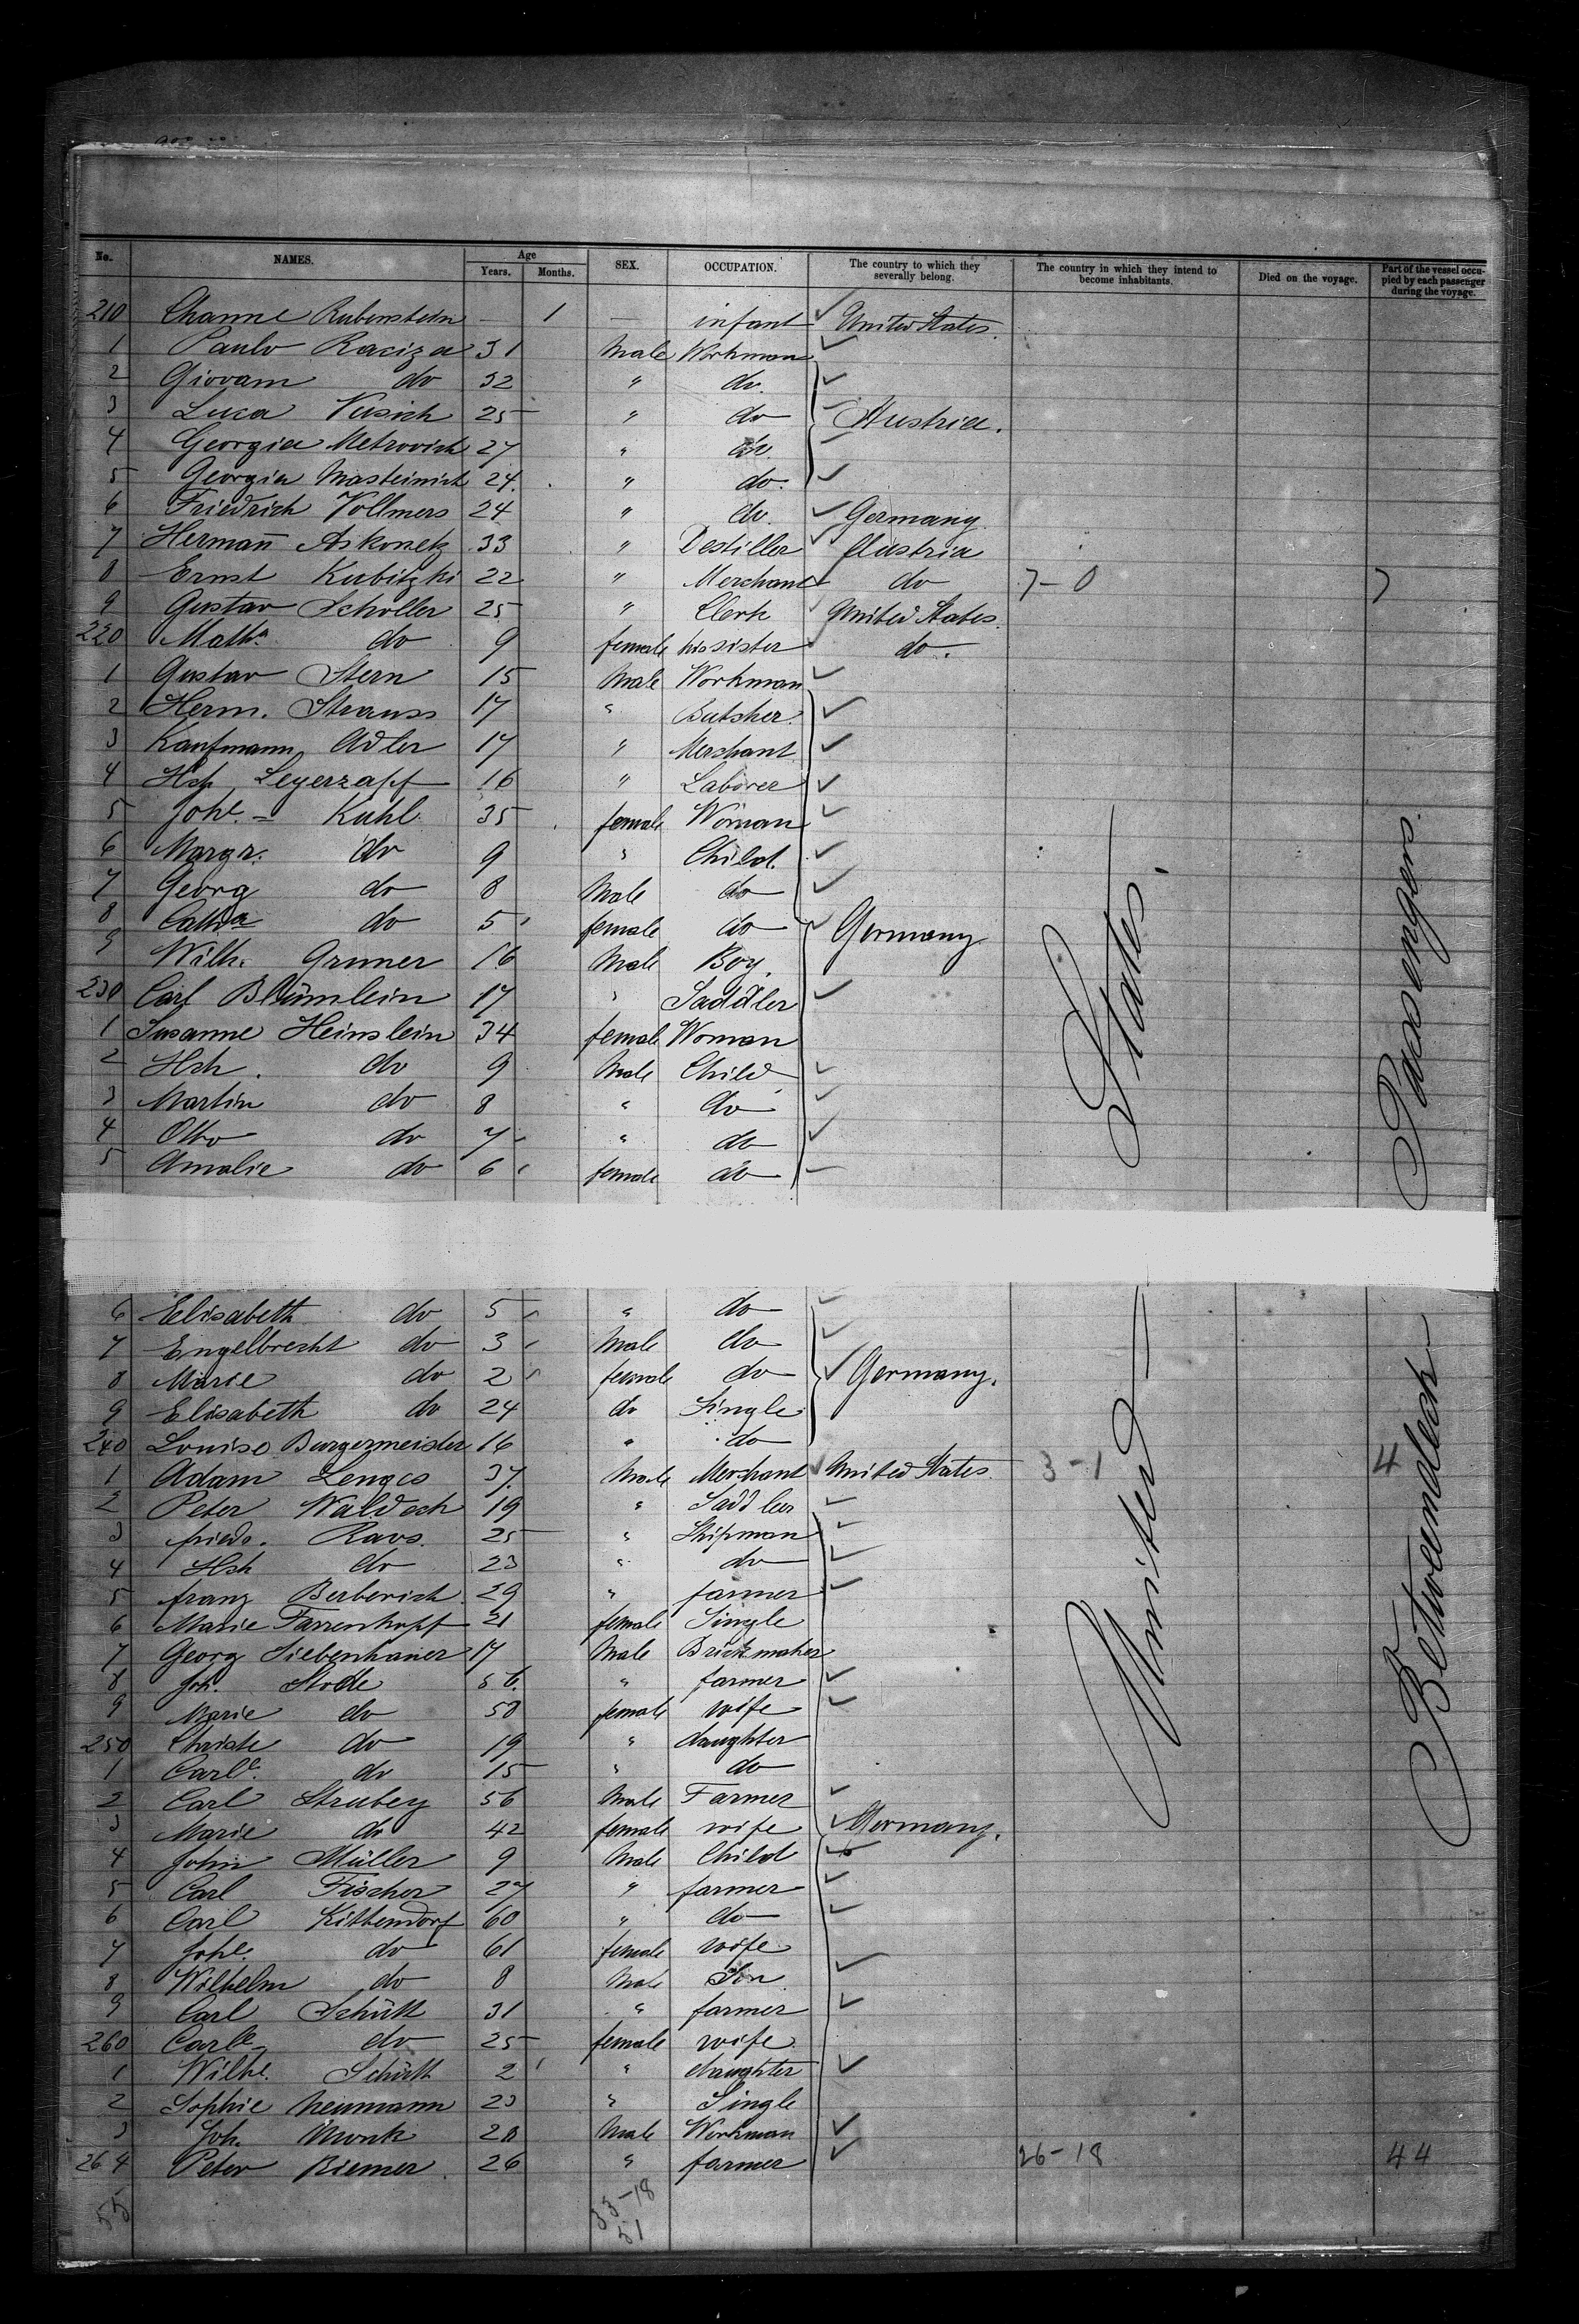 No. NAMES. Age Years. Months. SEX. OCCUPATION. The country to which they severally belong. The country in which they intend to become inhabitants. Died on the voyage. Part of the vessel occupied by each passenger during the voyage.
210 Channe Rubenstein — 1 — infant United States
1 Paulo Raciza 31 Male Workman
2 Giovam do 32 " do
3 Luca Vusich 25 " do Austria.
4 Georgia Metrovich 27 " do
5 Georgia 24 " do
6 Friedrich Vollmers 24 " do Germany
7 Hermañ Askonetz 33 " Destiller Austria
8 Ernst Kubitzki 22 " Merchant do 7-0 7
9 Gustav Scholler 25 " Clerk United States
220 Matha do 9 female his sister do.
1 Gustav Stern 15 Male Workman
2 Herm. Strauss 17 " Butsher
3 Kaufmann Adler 17 " Merchant
4 Hch Leyerzapf 16 " Laborer
5 Johe. Kuhl 35 female Woman
6 Margr. do 9 " Child.
7 Georg do 8 Male do
8 Catha do 5 female do Germany
9 Wilh. Gruner 16 Male Boy.
230 Carl Blümlein 17 " Saddler
1 Susanne Heinslein 34 female Woman
2 Hch. do 9 Male Child
3 Martin do 8 " do
4 Otto do 7 " do
5 Amalie do 6 female do
6 Elisabeth do 5 " do
7 Engelbrecht do 3 Male do
8 Marie do 2 female do Germany.
9 Elisabeth do 24 do Single
240 Louise Burgermeister 16 " do
1 Adam Lenges 37 Male Merchant United States 3-1 4
2 Peter Waldsch 19 " Saddler
3 friedr. Ravs. 25 " Shipman
4 Hch do 23 " do
5 franz Berberich 29 " farmer
6 Marie Farrenkopf 21 female Single
7 Georg Siebenhaner 17 Male Brickmaker
8 Joh. 56 " farmer
9 Marie do 58 female wife
250 Christe do 19 " daughter
1 Carle. do 15 " do
2 Carl Strubey 56 Male Farmer
3 Marie do 42 female wife Germany.
4 John Müller 9 Male Child
5 Carl Fischer 27 " farmer
6 Carl Kittendorf 60 " do
7 Johe. do 61 female wife
8 Wilhelm do 8 Male Son
9 Carl Schütt 31 " farmer
260 Carle do 25 female wife
1 Wilhe. Schütt 2 " daughter
2 Sophie Neumann 23 " Single
3 Joh. Munk 28 Male Workman
264 Peter Riemer 26 " farmer 26-18 44
55 33-18
51
United States.
Betweendeck Passengers.